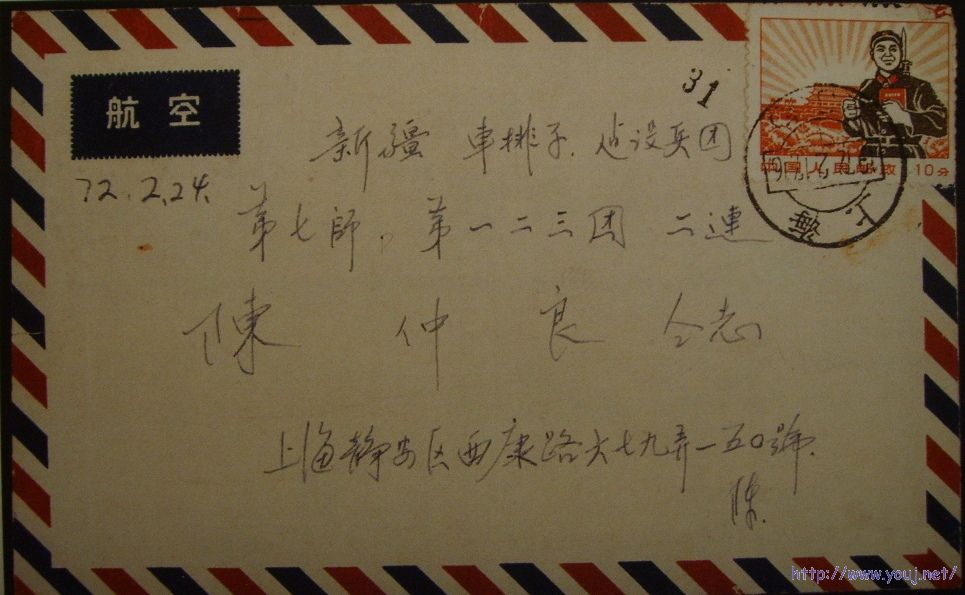 航空
31
中国人民邮政 10分
上海
72.2.24.
新疆 車排子.建设兵团
第七師，第一二三团 二連
陳 仲 良 仝志
上海静安区西康路六七九弄一五〇號.
陳.
http://www.youj.net/